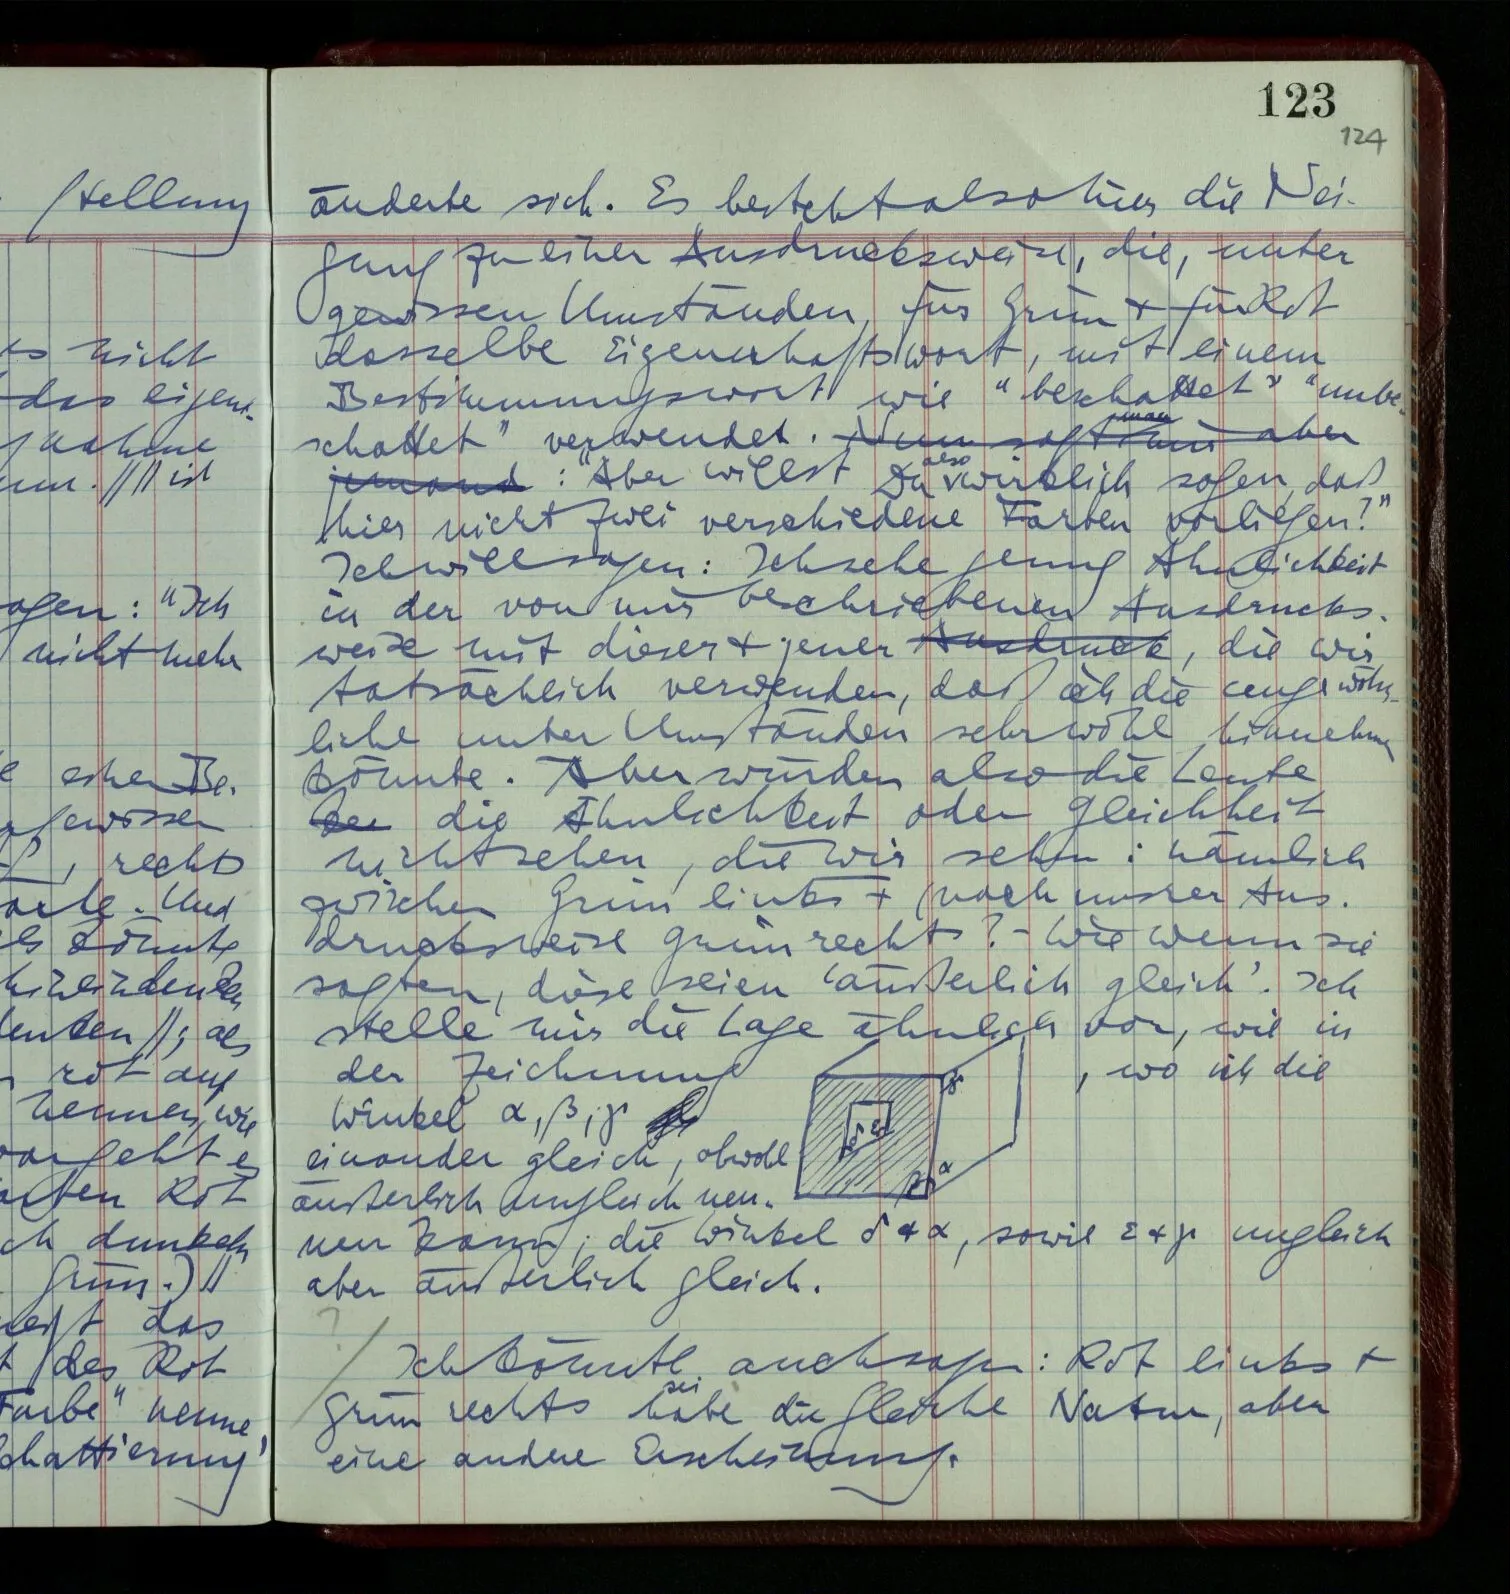 Stellung
es nicht
das eigent-
ist
ogen: "Ich
nicht mehr
Be-
gewissen
, rechts
. Und
könnte
; als
rot auf
nennen, wie
vorgeht es
Farben Rot
ch dunkeln
Grün.) //
das
des Rot
Farbe" nenne
chattierung'
123
124
änderte sich. Es besteht also hier die Nei-
gung zu einer Ausdrucksweise, die, unter
gewissen Umständen, für Grün + für Rot
dasselbe Eigenschaftswort, mit einem
Bestimmungswort wie "beschattet" "unbe-
schattet" verwendet. Nun sagt man mir aber
jemand: "Aber willst Du also wirklich sagen, daß
hier nicht zwei verschiedene Farben vorliegen?"
Ich will sagen: Ich sehe genug Ähnlichkeit
in der von mir beschriebenen Ausdrucks-
weise mit dieser + jener Ausdruck, die wir
tatsächlich verwenden, daß ich die ungewöhn-
liche unter Umständen sehr wohl hinnehmen
könnte. Aber würden also die Leute
die Ähnlichkeit oder Gleichheit
nicht sehen, die wir sehn: nämlich
zwischen Grün links + (nach unsrer Aus-
drucksweise Grün rechts? – Wie wenn sie
sagten, diese seien 'äußerlich gleich'. Ich
stelle mir die Lage ähnlich vor, wie in
der Zeichnung , wo ich die
Winkel α, β, γ
einander gleich, obwohl
äußerlich ungleich nen-
nen kann; die Winkel δ + α, sowie ε + γ ungleich
aber äußerlich gleich.
γ
δ
ε
β
α
? / Ich könnte auch sagen: Rot links +
Grün rechts sei habe die gleiche Natur, aber
eine andere Erscheinung.